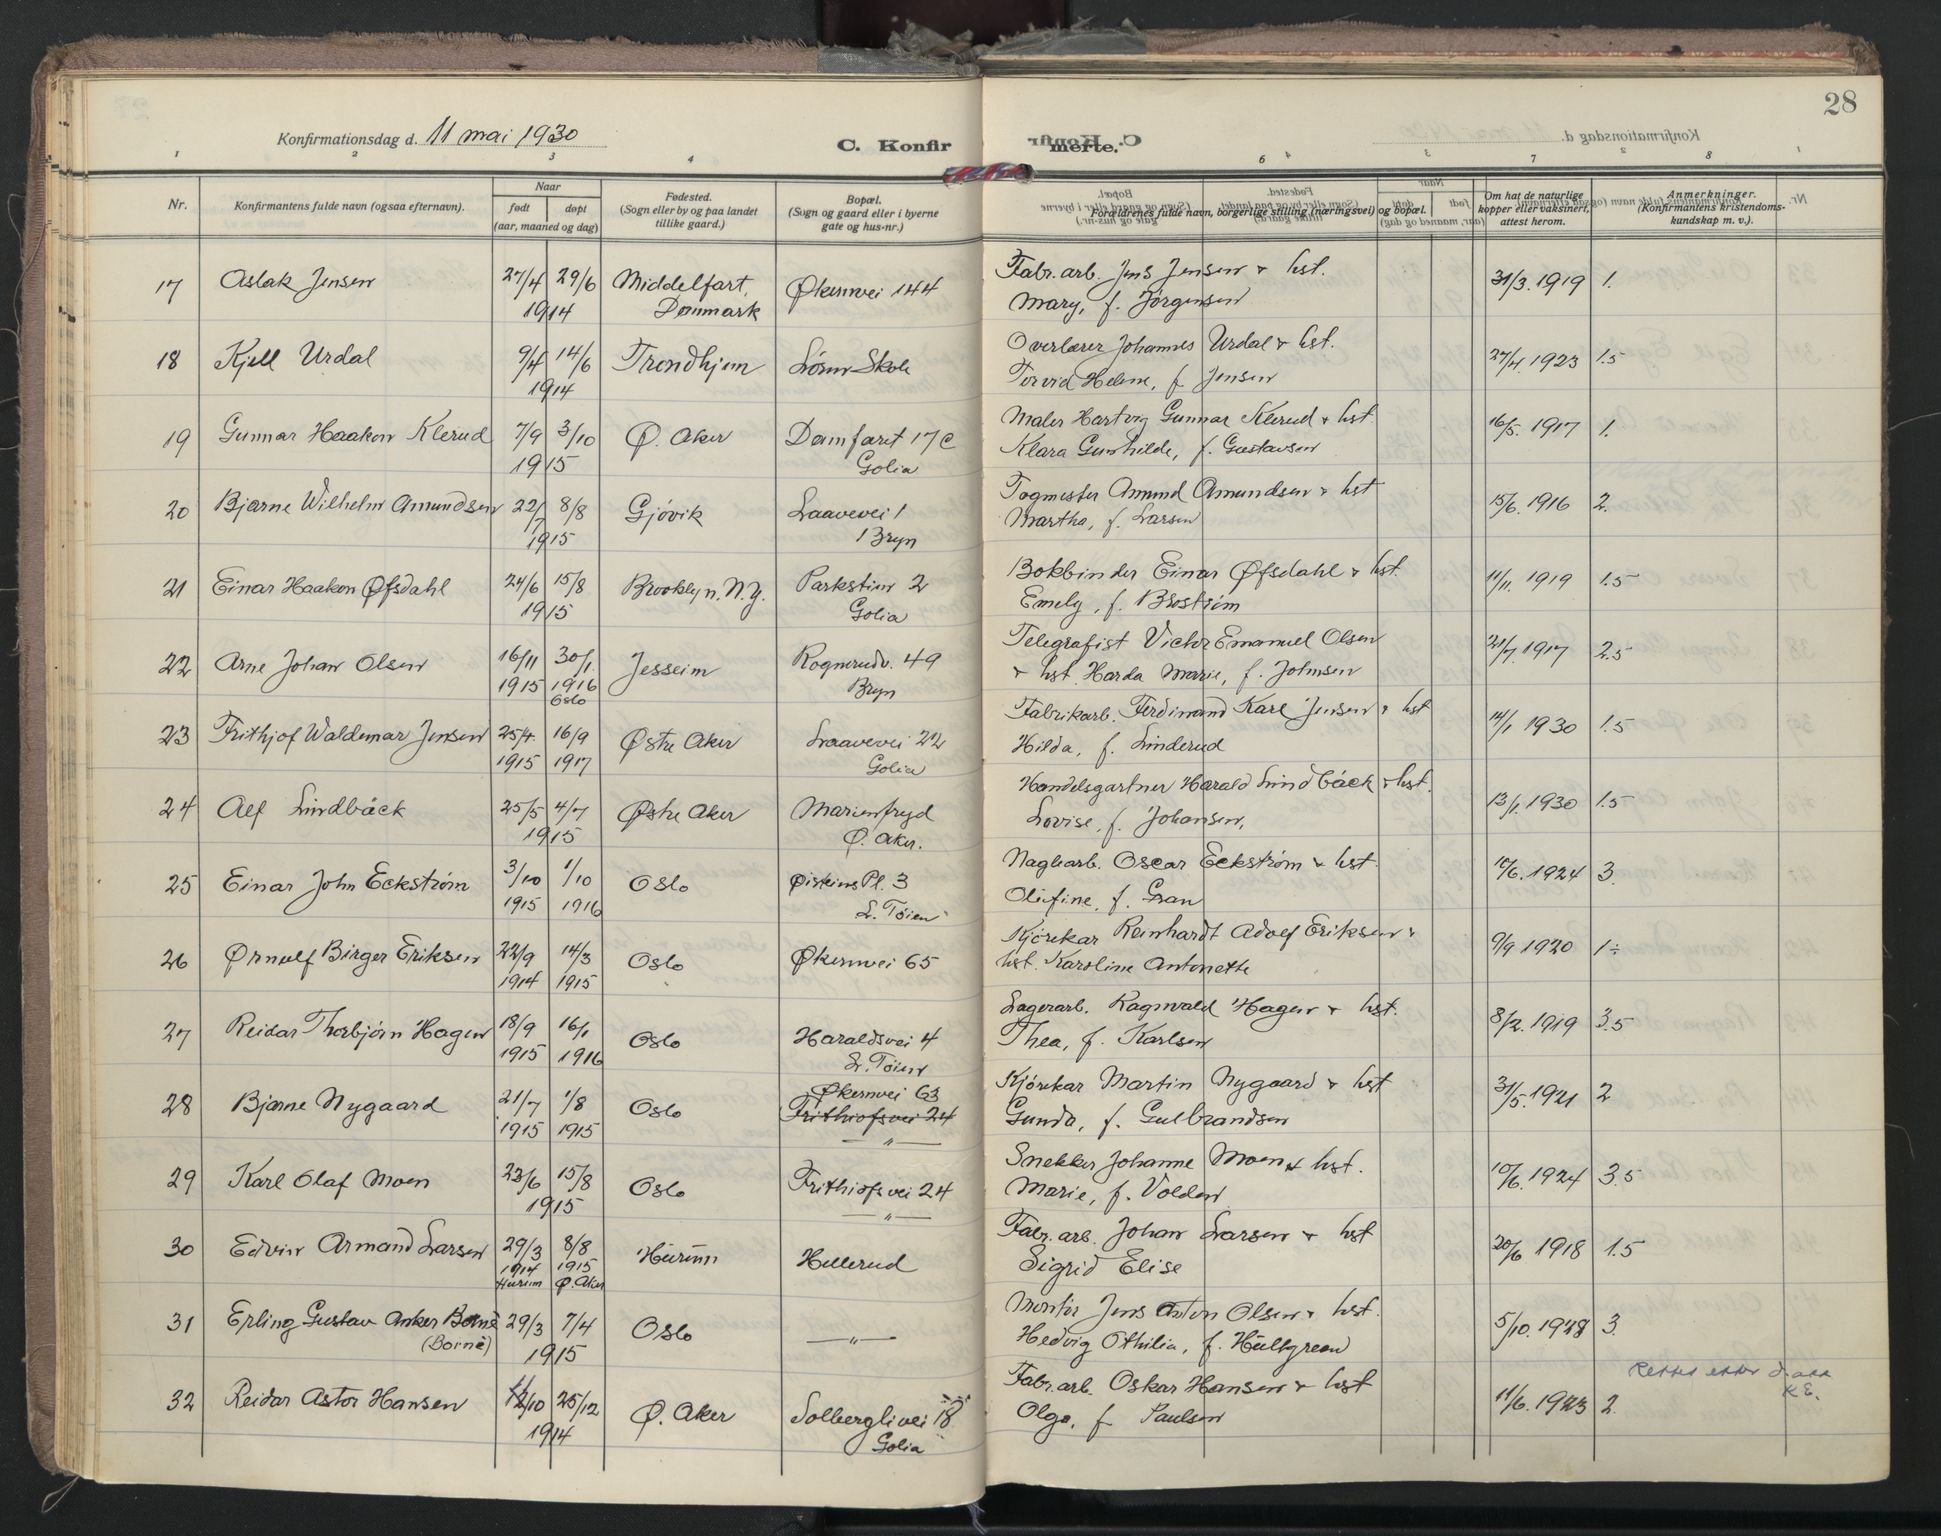 28
Konfirmationsdag d. 11 mai 1930 C. Konfir merte.
1 2 3 4 6 7 8
Nr. Konfirmantens fulde navn (ogsaa efternavn). Naar født døpt (aar, maaned og dag) Fødested. (Sogn eller by og paa landet tillike gaard.) Bopæl. (Sogn og gaard eller i byerne gate og hus-nr.) Forældrenes fulde navn, borgerlige stilling (næringsvei) og bopæl. Om hat de naturlige kopper eller vaksinert, attest herom. Anmerkninger. (Konfirmantens kristendoms-kundskap m. v.).
17 Aslak Jensen 27/4 29/6 Middelfart, Økernvei 144 Fabr. arb. Jens Jensen & hst. 31/3. 1919 1.
1914 Danmark Mary, f. Jørgensen
18 Kjell Urdal 9/4 14/6 Trondhjem Løren Skole Overlærer Johannes Urdal & hst. 27/4. 1923 1.5
1914 f. Jensen
19 Gunnar Haakon Klerud 7/9 3/10 Ø. Aker Damfaret 17 c Maler Hartvig Gunnar Klerud & hst. 16/5. 1917 1.
1915 Golia Klara Gunhilde, f. Gustavsen
20 Bjarne Wilhelm Amundsen 22/7 8/8 Gjøvik Laavevei 1 Togmester Amund Amundsen & hst 15/6. 1916 2.
1915 Bryn Martha, f. Larsen
21 Einar Haakon Øfsdahl 24/6 15/8 Brooklyn. N.Y. Parkstien 2 Bokbinder Einar Øfsdahl & hst. 11/11. 1919 1.5
1915 Golia Emely, f. Brostrøm
22 Arne Johan Olsen 16/11 30/1 Jesseim Rognerudv. 49 Telegrafist Victor Emanuel Olsen 21/7. 1917 2.5
1915 1916 Oslo Bryn & hst. Harda Marie, f. Johnsen
23 Frithjof Waldemar Jensen 25/4 16/9 Østre Aker Laavevei 22 Fabrikarb. Ferdinand Karl Jensen & hst 14/1 1930 1.5
1915 1917 Golia Hilda, f. Linderud
24 Alf Lindbäck 25/5 4/7 Østre Aker Marienfryd Handelsgartner Harald Lindbäck & hst. 13/1. 1930 1.5
1915 Ø. Aker. Lovise, f. Johansen,
25 Einar John Eckstrøm 3/10 1/10 Oslo Pl. 3 Naglearb. Oscar Eckstrøm & hst. 10/6. 1924 3.
1915 1916 L. Tøien Olufine, f. Gran
26 Ørnulf Birger Eriksen 22/9 14/3 Oslo Økernvei 65 Kjørekar Reinhardt Adolf Eriksen & 9/9 1920 1 ÷
1914 1915 hst. Karoline Antonette
27 Reidar Thorbjørn Hagen 18/9 16/1 Oslo Haraldsvei 4 Lagerarb. Ragnvald Hagen & hst. 8/2. 1919 3.5
1915 1916 L. Tøien Thea, f. Karlsen
28 Bjarne Nygaard 21/7 1/8 Oslo Økernvei 63 Kjørekar Martin Nygaard & hst 31/5. 1921 2
1915 1915 Frithiofsvei 24 — " — Gunda, f. Gulbrandsen
29 Karl Olaf Moen 23/6 15/8 Oslo Frithiofsvei 24 Snekker Johanne Moen & hst. 10/6. 1924 3.5
1915 — " — Marie, f. Volden
30 Edvin Armand Larsen 29/3 8/8 Hurum Hellerud Fabr. arb. Johan Larsen & hst 20/6 1918 1.5
1914 1915 Hurum Ø. Aker Sigrid Elise
31 Erling Gustav Anker Borné 29/3 7/4 Oslo — " — Montør Jens Anton Olsen & hst. 5/10. 1928 3.
(Borné) 1915 Hedvig Othilia, f. Hultgreen
Rettet etter d.att K E.
32 Reidar Astor Hansen 12/10 25/12 Ø. Aker Solberglivei 18 Fabr. arb. Oskar Hansen & hst 11/6. 1923 2.
1914 Golia Olga, f. Paulsen